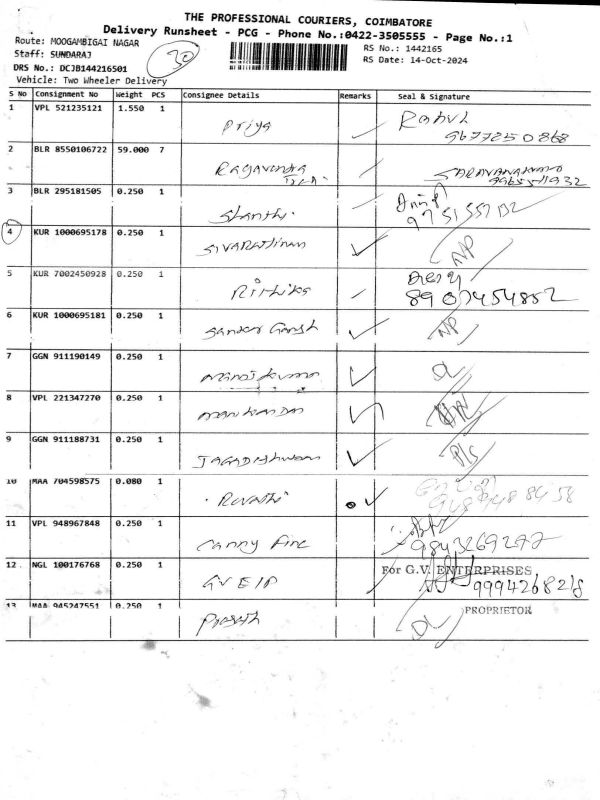 THE PROFESSIONAL COURIERS, COIMBATORE
Delivery Runsheet - PCG - Phone No.:0422-3505555 - Page No.:1
Route: MOOGAMBIGAI NAGAR
RS No.: 1442165
Staff: SUNDARAJ
30
RS Date: 14-Oct-2024
DRS No.: DCJB144216501
Vehicle: Two Wheeler Delivery
S No Consignment No Weight PCS Consignee Details Remarks Seal & Signature
1 VPL 521235121 1.550 1 Priya Rahul
9677250868
2 BLR 8550106722 59.000 7 Ragavendra SARAVANAKUMAR
3 BLR 295181505 0.250 1 Shanthi
4 KUR 1000695178 0.250 1 SIVARATHINAM NP
5 KUR 7002450928 0.250 1 Rithika
6 KUR 1000695181 0.250 1 Sankar Ganesh NP
7 GGN 911190149 0.250 1 Manoj Kumar DL
8 VPL 221347270 0.250 1 Manikandan
9 GGN 911188731 0.250 1 JAGADISHWARAN
10 MAA 704598575 0.080 1 Revathi
11 VPL 948967848 0.250 1 Canny Fire
9843269272
12 NGL 100176768 0.250 1 GV EIP For G.V. ENTERPRISES
9994268218
13 MAA 945247551 0.250 1 Prasath DL
PROPRIETOR